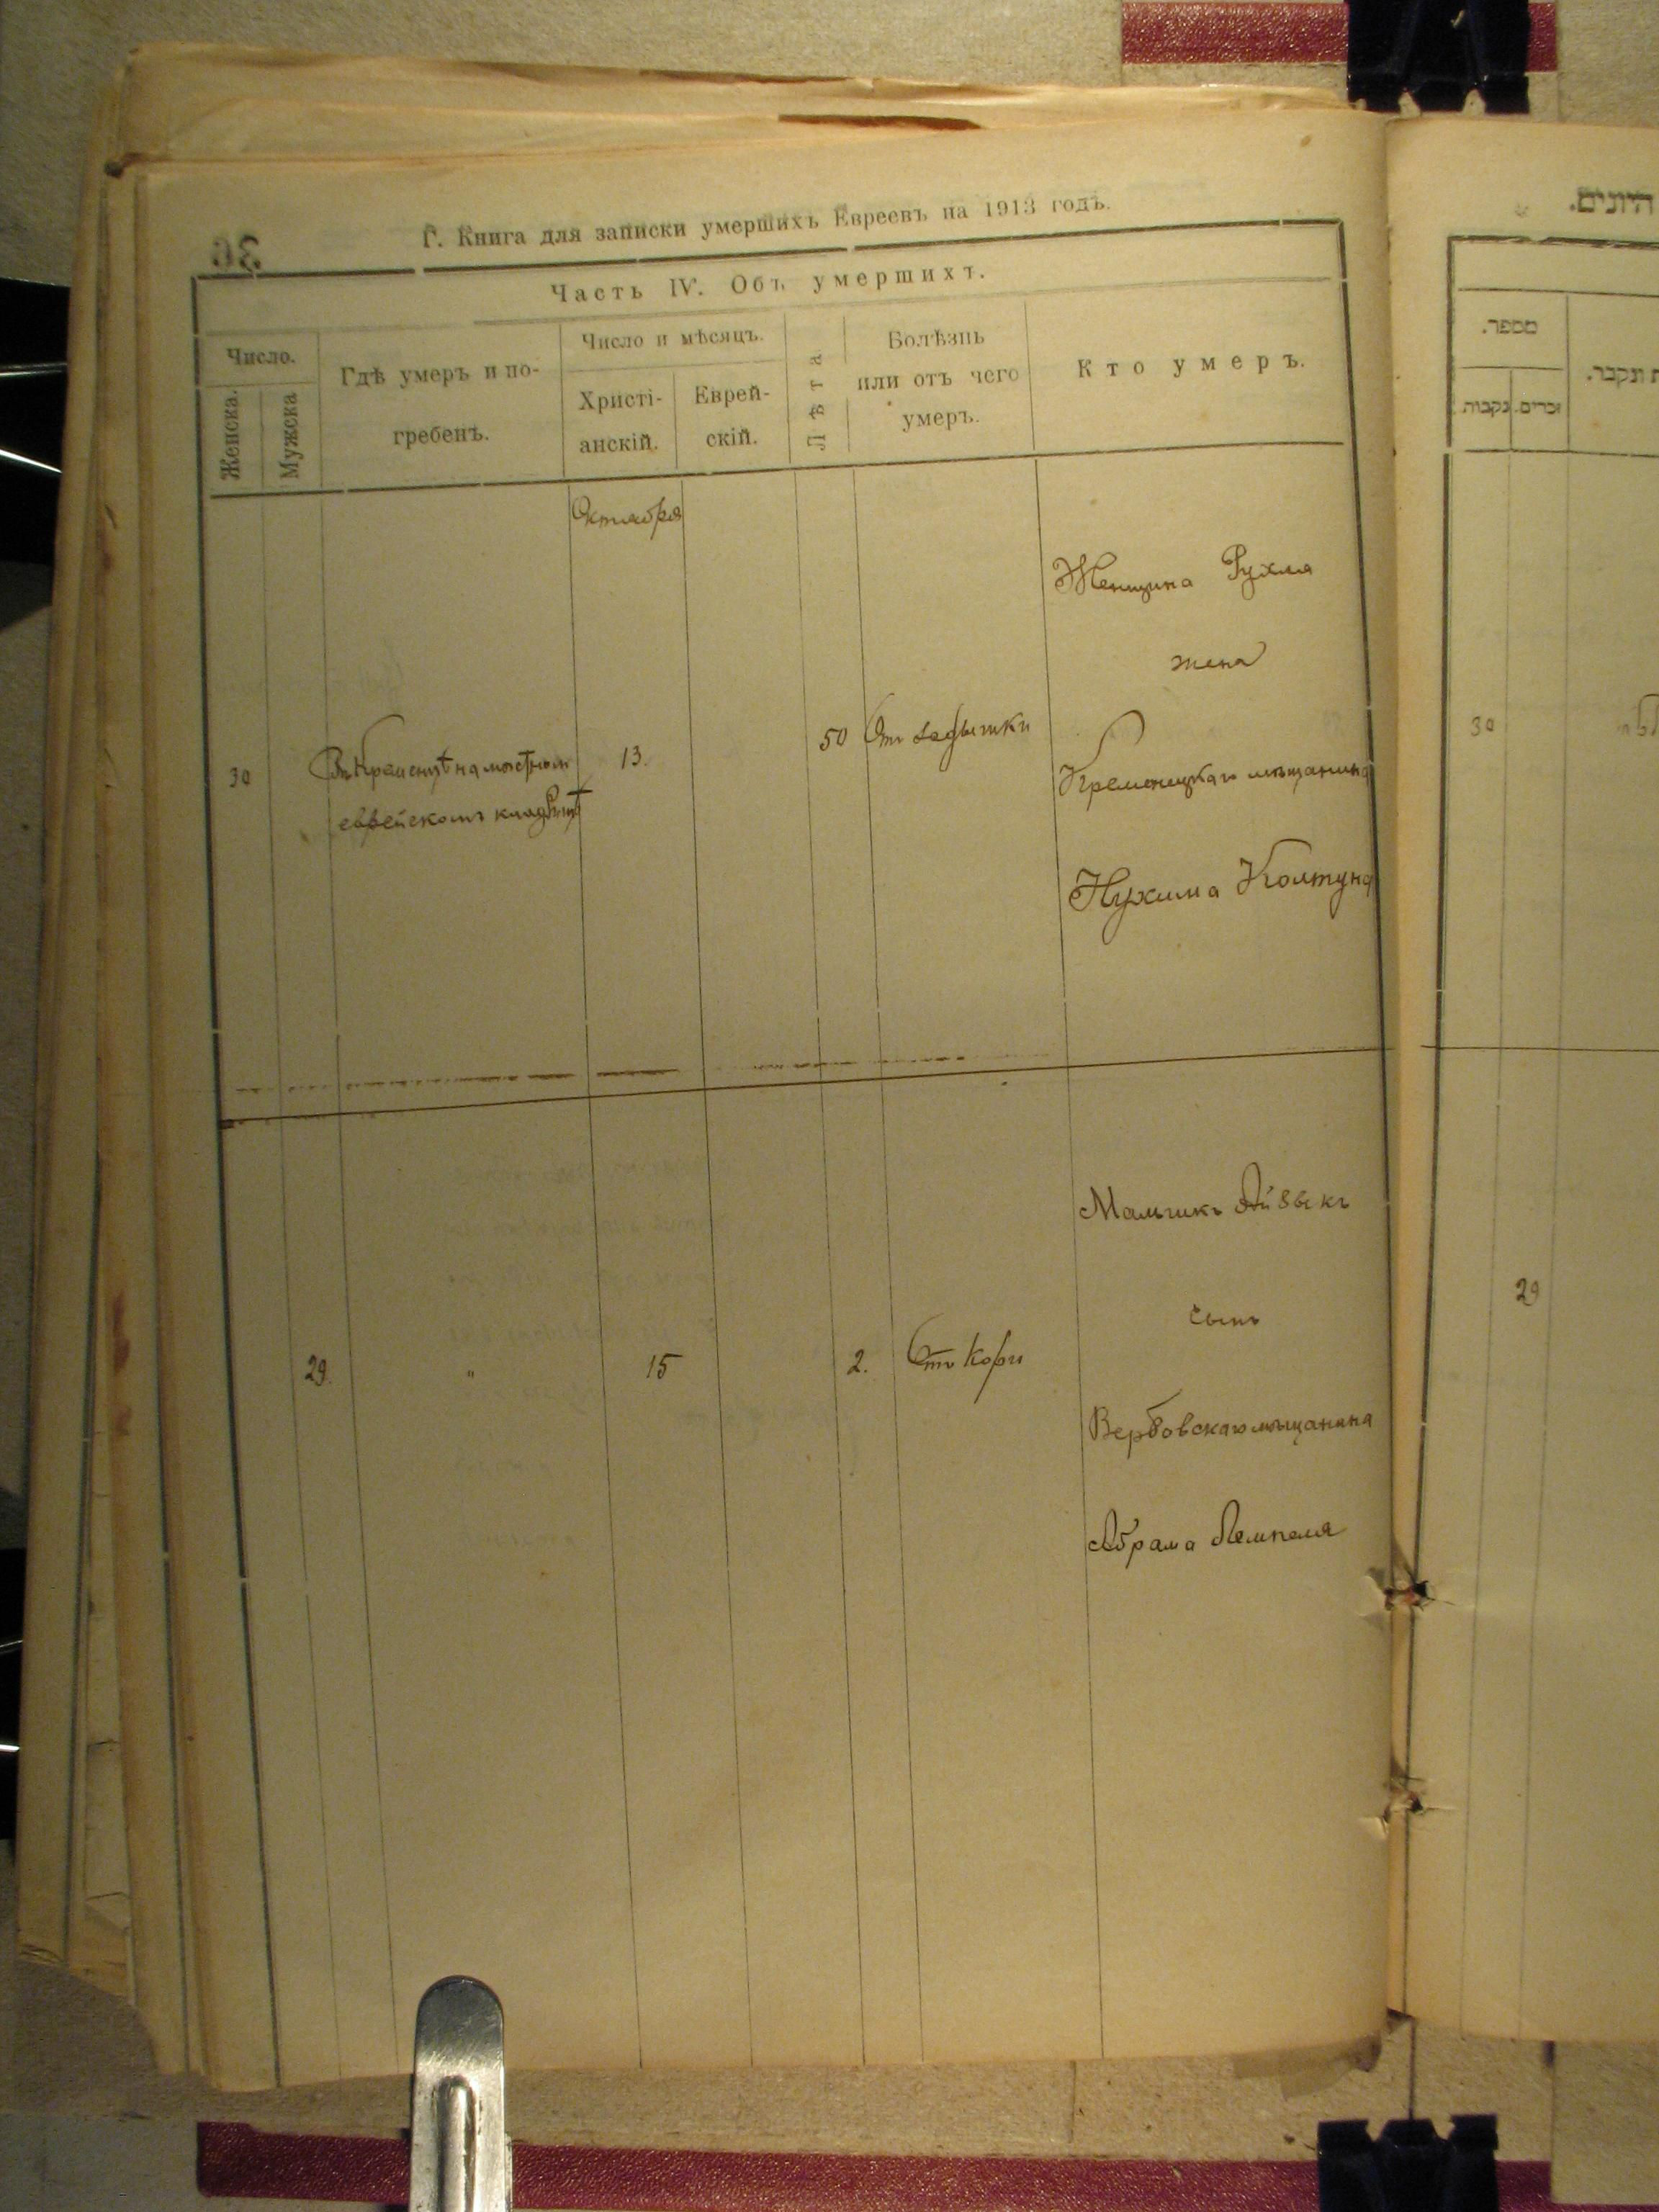 Г. Книга для записки умершихъ Евреевъ на 1913 годъ.
Часть IV. Объ умершихъ.
Число.
Женска.
Мужска
Гдѣ умеръ и по-
гребенъ.
Число и мѣсяцъ.
Христі-
анскій.
Еврей-
скій.
Лѣта.
Болѣзнь
или отъ чего
умеръ.
Кто умеръ.
Октября
30
Въ Кременцѣ на мѣстномъ
еврейскомъ кладбищѣ
13.
50
Отъ задышки
Женщина Рухля
жена
Кременецкаго мѣщанина
Нухима Колтуна
29.
"
15
2.
Отъ Кори
Мальчикъ Айзыкъ
сынъ
Вербовскаго мѣщанина
Абрама Лемпеля
היונים.
מספר.
נקבות
זכרים.
ונקבר.
30
29